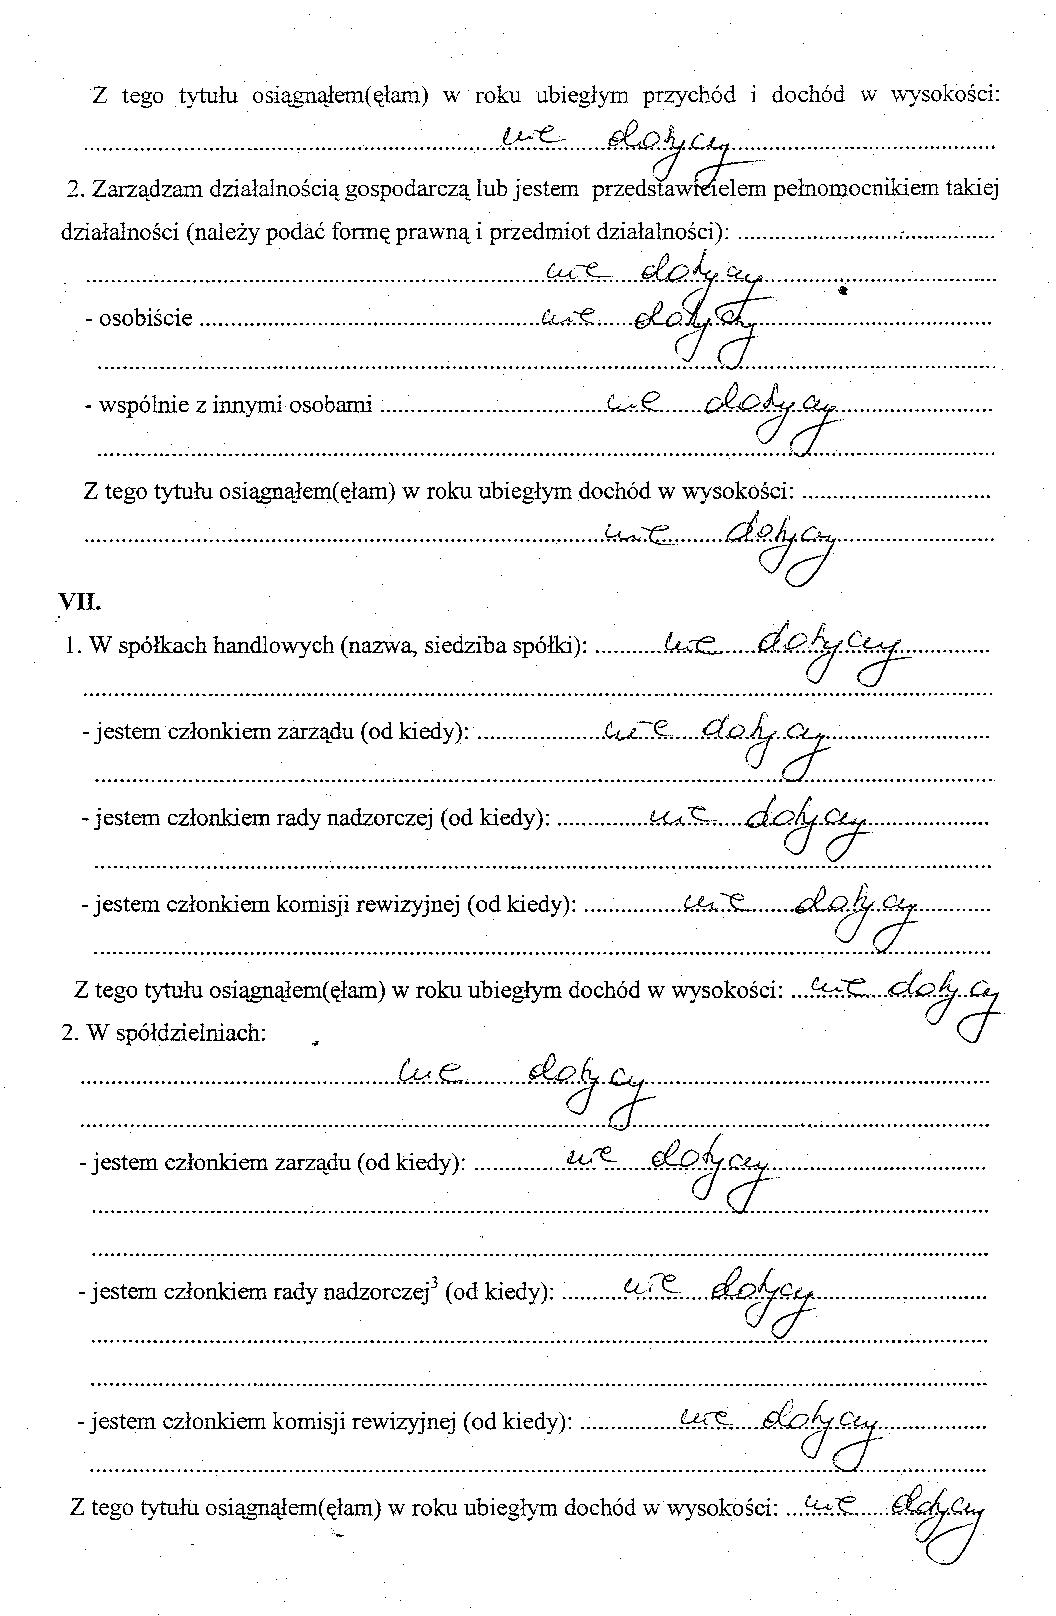 Z tego tytułu osiągnąłem(ęłam) w roku ubiegłym przychód i dochód w wysokości:
nie dotyczy
2. Zarządzam działalnością gospodarczą lub jestem przedstawicielem pełnomocnikiem takiej
działalności (należy podać formę prawną i przedmiot działalności):
nie dotyczy
- osobiście nie dotyczy
- wspólnie z innymi osobami nie dotyczy
Z tego tytułu osiągnąłem(ęłam) w roku ubiegłym dochód w wysokości:
nie dotyczy
VII.
1. W spółkach handlowych (nazwa, siedziba spółki): nie dotyczy
- jestem członkiem zarządu (od kiedy): nie dotyczy
- jestem członkiem rady nadzorczej (od kiedy): nie dotyczy
- jestem członkiem komisji rewizyjnej (od kiedy): nie dotyczy
Z tego tytułu osiągnąłem(ęłam) w roku ubiegłym dochód w wysokości: nie dotyczy
2. W spółdzielniach:
nie dotyczy
- jestem członkiem zarządu (od kiedy): nie dotyczy
- jestem członkiem rady nadzorczej³ (od kiedy): nie dotyczy
- jestem członkiem komisji rewizyjnej (od kiedy): nie dotyczy
Z tego tytułu osiągnąłem(ęłam) w roku ubiegłym dochód w wysokości: nie dotyczy